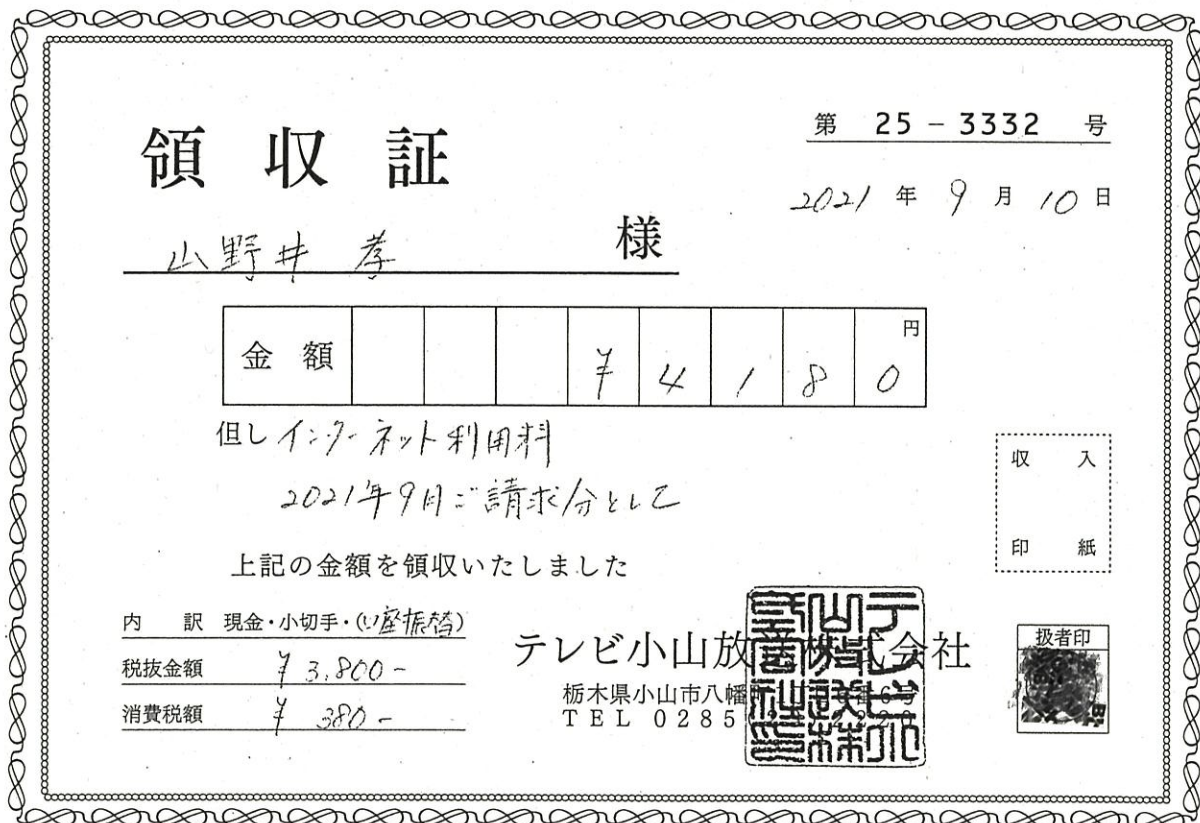 領収証
第 25-3332 号
2021 年 9 月 10 日
山野井 孝 様
金額 ¥4180 円
但し インターネット利用料
2021年9月ご請求分として
上記の金額を領収いたしました
収入
印紙
内訳 現金・小切手・(口座振替)
税抜金額 ¥3,800-
消費税額 ¥380-
テレビ小山放送株式会社
栃木県小山市八幡
TEL 0285
扱者印